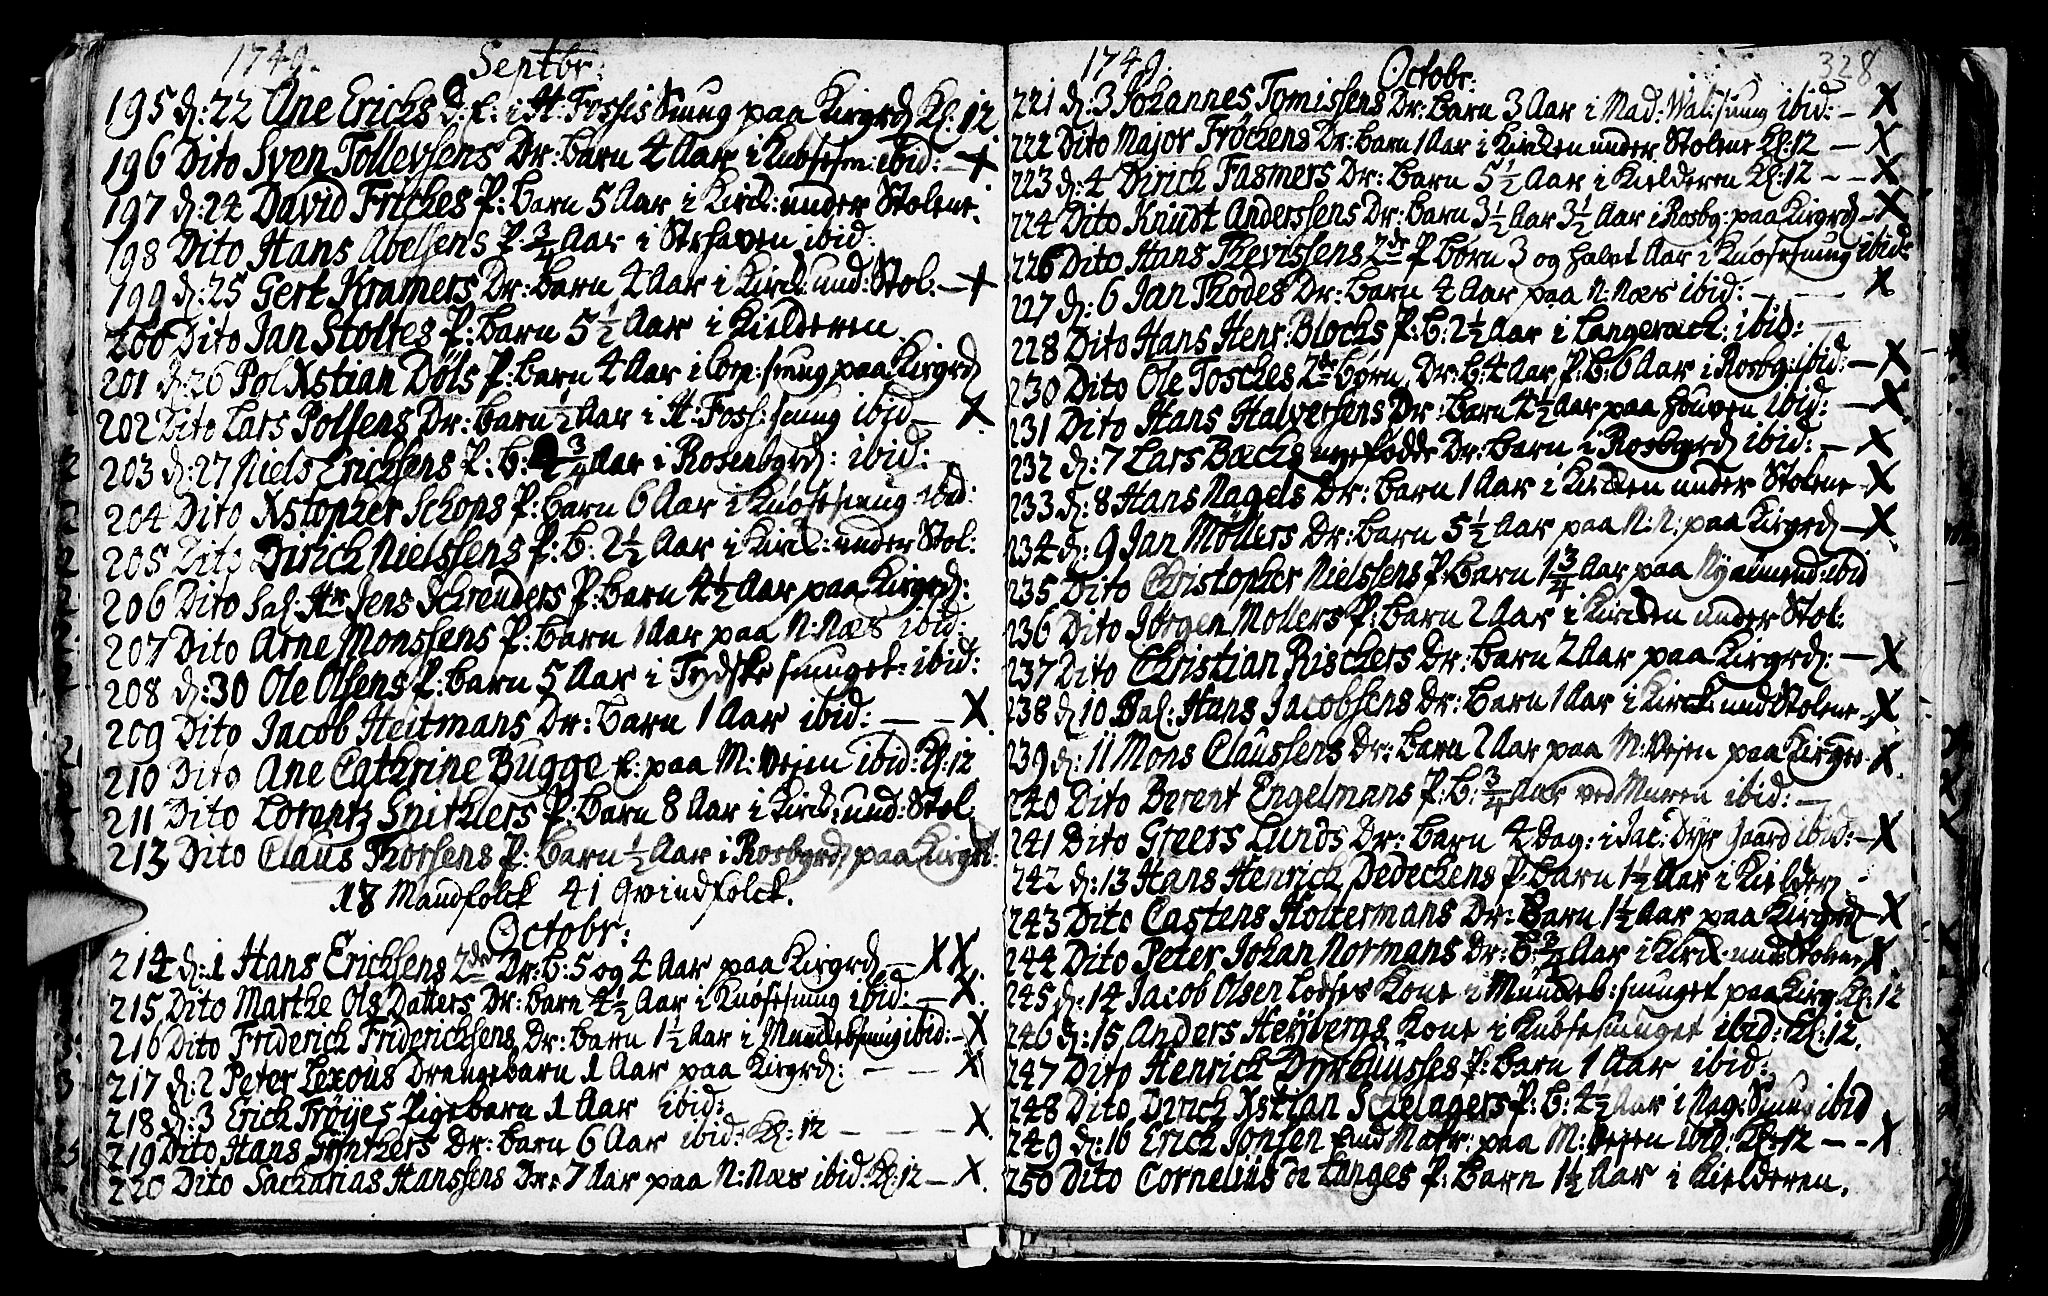 1749. Septbr:
195 d: 22 Ane Erichs d: E: i H: Fossis Smug paa Kirgrd Kl: 12
196 Dito Sven Tollevsens Dr: barn 4 Aar i Knøsesm: ibid: — X
197 d: 24 David Friches P: barn 5 Aar i Kirck: under Stolene.
198 Dito Hans Abelsens P: 3/4 Aar i Strhaven ibid:
199 d: 25 Gert Kramers Dr: barn 4 Aar i Kirck: und: Stol. — X
200 Dito Jan Stoltes P: barn 5 1/2 Aar i Kielderen
201 d: 26 Pol Xstian Döls P: barn 4 Aar i Com: smug paa Kirgrd
202 Dito Lars Polsens Dr: barn 1/2 Aar i H: Foss: smug ibid — X.
203 d: 27 Niels Erichsens P: b: 3/4 Aar i Rosenbgrd: ibid:
204 Dito Xstopher Schops P: barn 6 Aar i Knøsesmug ibid:
205 Dito Dirich Nielssens P: b: 2 1/2 Aar i Kirck: under Stol:
206 Dito Sal: Hr Jens Schreuders P: barn 4 1/2 Aar paa Kirgrd:
207 Dito Arne Monssens P: barn 1 Aar paa N: Næs ibid:
208 d: 30 Ole Olsens P: barn 5 Aar i Tydske smuget: ibid:
209 Dito Jacob Heitmans Dr: barn 1 Aar ibid: — — X
210 Dito Ane Cathrine Bugge E: paa M: Veien ibid: Kl: 12
211 Dito Lorentz Snitklers P: barn 8 Aar i Kirck: und: Stol:
213 Dito Claus Thorsens P: barn 1/2 Aar i Rosbgrd paa Kirgrd:
18 Mandfolck 41 Qvindfolck.
Octobr:
214 d: 1 Hans Erichsens 2de Dr: b: 5 og 4 Aar paa Kirgrd — X X.
215 Dito Marthe Ols Datters Dr: barn 4 1/2 Aar i Knøsesmug ibid: — X.
216 Dito Friderich Friderichsens Dr: barn 1 1/2 Aar i Mundebsmug ibid: — X
217 d: 2 Peter Lexous Drengebarn 1 Aar paa Kirgrd: — — X
218 d: 3 Erich Trøyes Pigebarn 1 Aar ibid:
219 Dito Hans Gynthers Dr: barn 6 Aar ibid: Kl: 12 — — — X.
220 Dito Sacharias Hanssens Dr: 7 Aar paa N: Næs ibid: Kl: 12 — X.
1749. Octobr: 328
221 d: 3 Johannes Tomissens Dr: barn 3 Aar i Mad: Wal: smug ibid: — X
222 Dito Major Fröchens Dr: barn 1 Aar i Kircken under Stolene Kl: 12 — X
223 d: 4 Dirich Fasmers Dr: barn 5 1/2 Aar i Kielderen Kl: 12 — — X
224 Dito Knudt Anderssens Dr: barn 3 1/2 Aar 3 1/2 Aar i Rosbg: paa Kirgrd — X
226 Dito Hans Thevissens 2de P børn 3 og halvt Aar i Knøsesmug ibid:
227 d: 6 Jan Thodes Dr: barn 4 Aar paa N: Næs ibid: — — X
228 Dito Hans Henr: Blochs P: b: 2 1/2 Aar i Langerack: ibid: —
230 Dito Ole Tosches 2de børn, Dr: b: 4 Aar, P: b: 6 Aar i Rosbg: ibid: — X
231 Dito Hans Halversens Dr: barn 4 1/2 Aar paa Houven ibid: — X.
232 d: 7 Lars Bachs nyefødde Dr: barn i Rosbgrd ibid: — X
233 d: 8 Hans Nagels Dr: barn 1 Aar i Kircken under Stolene — X
234 d: 9 Jan Möllers Dr: barn 5 1/2 Aar paa N: N: paa Kirgrd — X.
235 Dito Christopher Nielssens P: barn 1 3/4 Aar paa Nyaimend: ibid
236 Dito Jörgen Mollers P: barn 2 Aar i Kircken under Stol:
237 Dito Christian Rischers Dr: barn 2 Aar paa Kirgrd: — X
238 d 10 Bal: Hans Jacobsens Dr: barn 1 Aar i Kirck: und Stolene — X
239 d: 11 Mons Claussens Dr: barn 2 Aar paa M: Veien paa Kirgrd — X.
240 Dito Berent Engelmans P: b: 3/4 Aar ved Muren ibid: —
241 Dito Greers Lunds Dr: barn 4 Dag: i Jac: Dyr Gaard ibid: — X
242 d: 13 Hans Henrich Dedechens P: barn 1 1/2 Aar i Kielder
243 Dito Castens Holtermans Dr: Barn 1 1/2 Aar paa Kirgrd — X
244 Dito Peter Johan Normans Dr: b: 3/4 Aar i Kirck und Stolene X.
245 d: 14 Jacob Olsen Lodses Kone i Mundeb: smuget paa Kirg: Kl: 12
246 d: 15 Anders Heybergs Kone i Knøsesmuget ibid: Kl: 12.
247 Dito Henrich Dyrehusses P: barn 1 Aar ibid:
248 Dito Dirich Xstian Schlagers P: b: 4 1/2 Aar i Nag: Smug ibid
249 d: 16 Erich Jonsen Matr: paa M: Veien ibid: Kl: 12 — — X
250 Dito Cornelius de Langes P: barn 1 1/2 Aar i Kielderen.